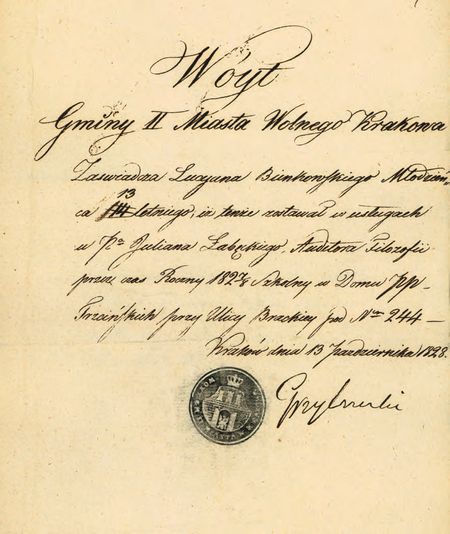 Wóyt
Gminy II Miasta Wolnego Krakowa
Zaświadza Lucyana Binkowskiego Młodzień,
ca 13 letniego, iż tenże zostawał w usługach
u Pa Juliana Łabęckiego, Auditora Filozofii
przez czas Roczny 1827/8 Szkolny w Domu PP.
przy Ulicy Brackiey pod Nrem 244 —
Kraków dnia 13 Października 1828.